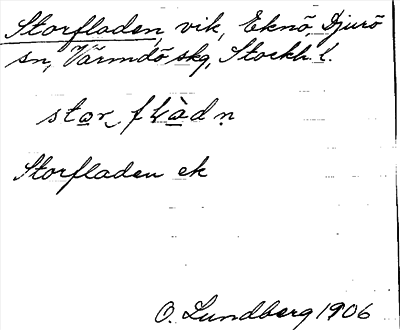 Storfladen, vik, Eknö, Djurö
sn, Värmdö skg, Stockh. l.
Storfladen ek
O. Lundberg 1906